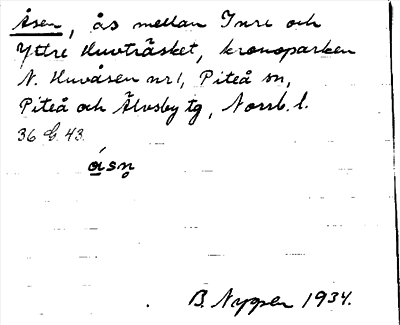 Åsen, ås mellan Inre och
Yttre Huvträsket, kronoparken
N. Huvåsen nr 1, Piteå sn,
Piteå och Älvsby tg, Norrb. l.
36 G. 43.
åsn̥
B. Nygren 1934.